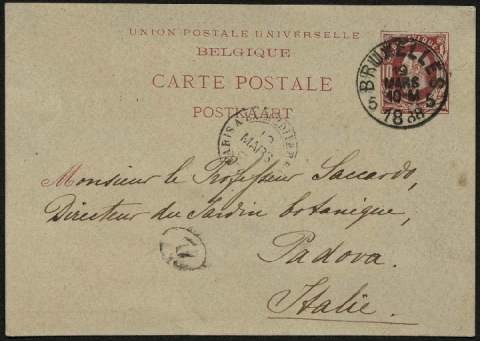 UNION POSTALE UNIVERSELLE
BELGIQUE
CARTE POSTALE
POSTKAART
BELGIQUE
10
BRUXELLES
19
MARS
10-M
5 5
1888
PARIS
MARS
Monsieur le Professeur Saccardo,
Directeur du Jardin botanique,
Padova.
Italie.